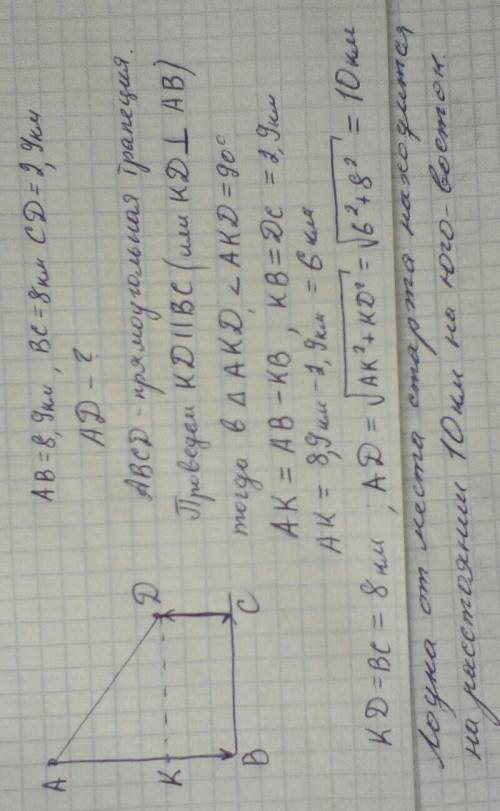 AB=8,9км, BC=8км CD=2,9км
AD-?
ABCD-прямоугольная трапеция.
Проведем KD||BC (или KD⊥AB)
тогда в △AKD, <AKD=90°
AK=AB-KB, KB=DC=2,9км
AK=8,9км-2,9км=6км
KD=BC=8км; AD=√AK²+KD²=√6²+8²=10км
Лодка от места старта находится
на расстоянии 10км на юго-восток.
A
K
D
B
C